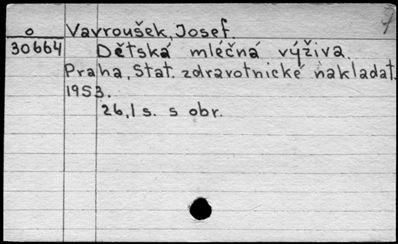 o Vavroušek, Josef.
30664 Dětská mléčná výživa.
Praha, Stat. zdravotnické nakladat.
1953.
26,1 s. s obr.